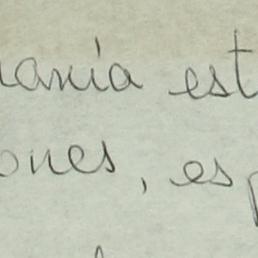 uania est
ones, esp